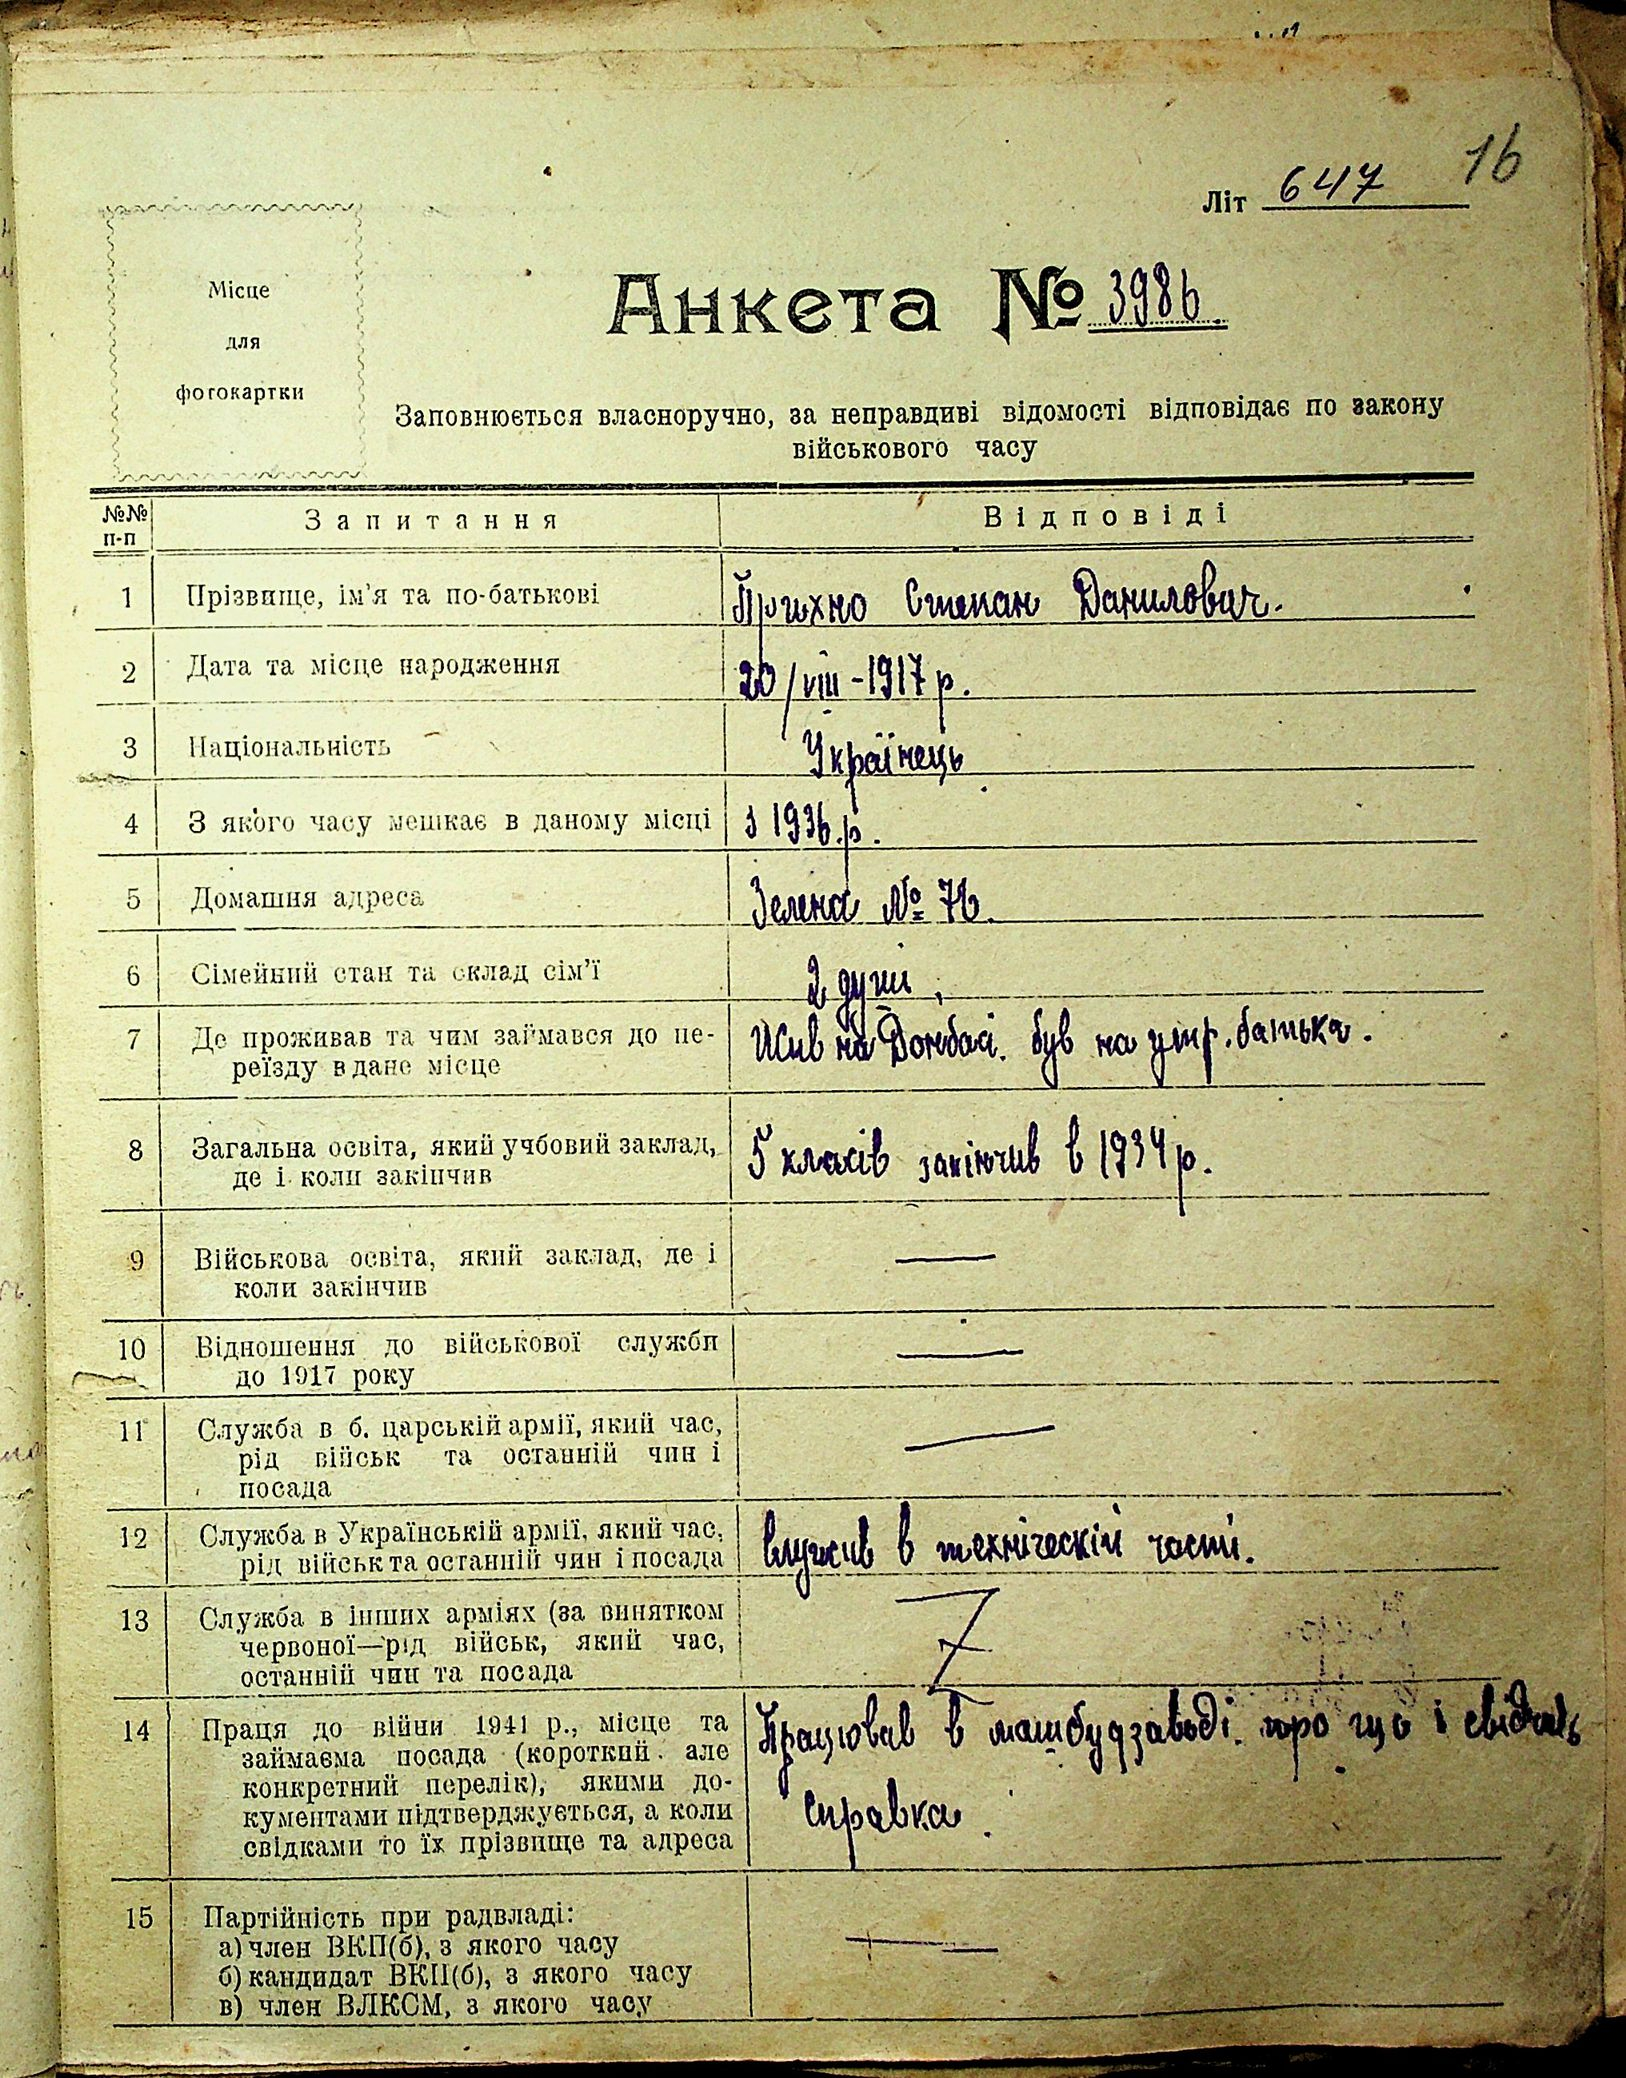 16
Літ 647
Місце
для
фотокартки
Анкета № 3986.
Заповнюється власноручно, за неправдиві відомості відповідає по закону
військового часу
№№ п-п Запитання Відповіді
1 Прізвище, ім'я та по-батькові Прихно Степан Данилович.
2 Дата та місце народження 20/VIII - 1917 р.
3 Національність Українець
4 З якого часу мешкає в даному місці з 1936.р.
5 Домашня адреса Зелена № 76.
6 Сімейний стан та склад сім'ї 2 душі,
7 Де проживав та чим займався до пе- Жив на Донбасі. був на утр. батька.
реїзду в дане місце
8 Загальна освіта, який учбовий заклад, 5 класів закінчив в 1934 р.
де і коли закінчив
9 Військова освіта, який заклад, де і —
коли закінчив
10 Відношення до військової служби —
до 1917 року
11 Служба в б. царській армії, який час, —
рід військ та останній чин і
посада
12 Служба в Українській армії, який час, служив в технічеській часті.
рід військ та останній чин і посада
13 Служба в інших арміях (за винятком
червоної—рід військ, який час,
останній чин та посада
14 Праця до війни 1941 р., місце та Працював в машбудзаводі. про що і свідчить
займаєма посада (короткий. але
конкретний перелік), якими до- справка.
кументами підтверджується, а коли
свідками то їх прізвище та адреса
15 Партійність при радвладі: —
а) член ВКП(б), з якого часу
б) кандидат ВКП(б), з якого часу
в) член ВЛКСМ, з якого часу